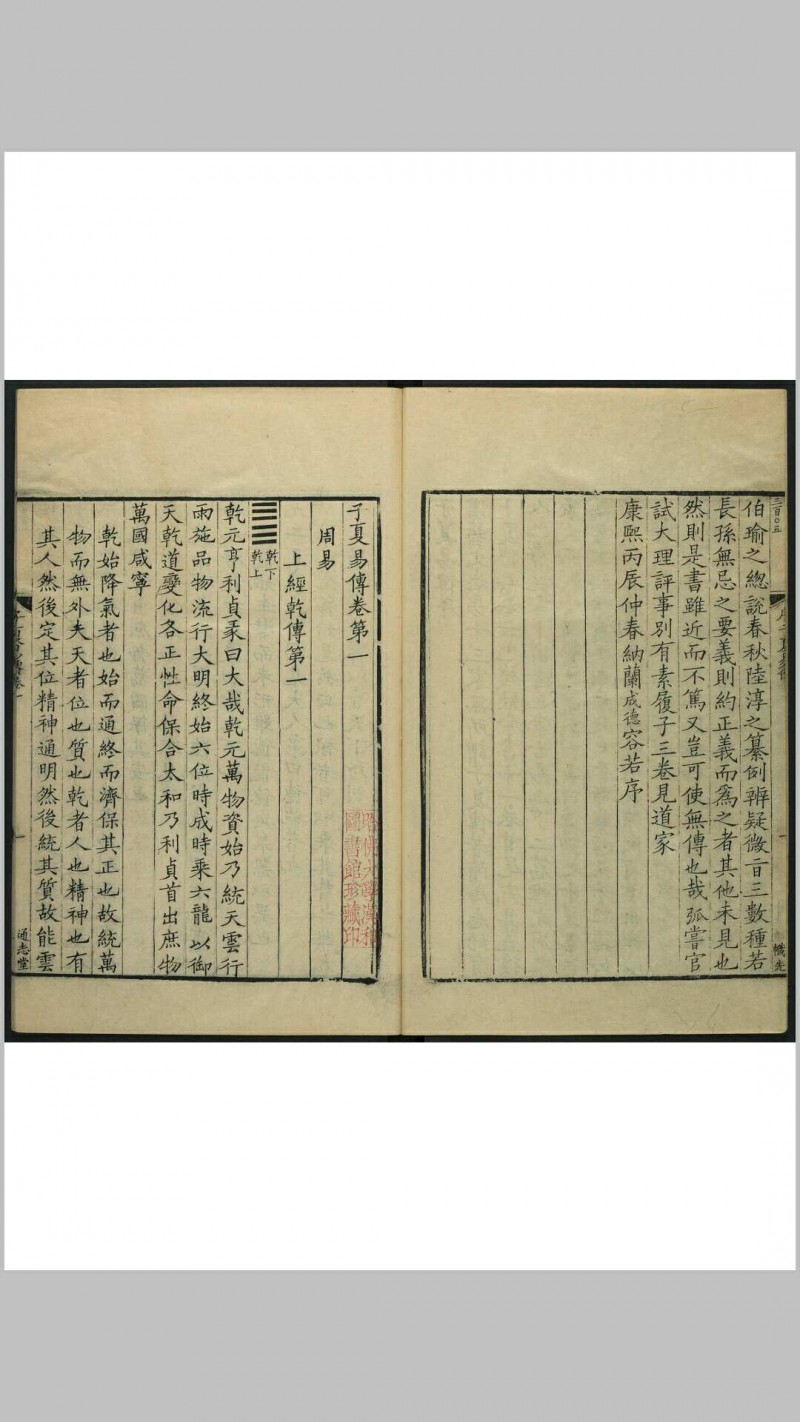 三百〇五
伯瑜之總說春秋陸淳之纂例辨疑微旨三數種若
長孫無忌之要義則約正義而為之者其他未見也
然則是書雖近而不篤又豈可使無傳也哉弧嘗官
試大理評事別有素履子三卷見道家
康熙丙辰仲春納蘭成德容若序
子夏易傳卷第一
周易
上經乾傳第一
乾下
乾上
乾元亨利貞彖曰大哉乾元萬物資始乃統天雲行
雨施品物流行大明終始六位時成時乘六龍以御
天乾道變化各正性命保合太和乃利貞首出庶物
萬國咸寧
乾始降氣者也始而通終而濟保其正也故統萬
物而無外夫天者位也質也乾者人也精神也有
其人然後定其位精神通明然後統其質故能雲
一
通志堂
哈佛大學漢和
圖書館珍藏印